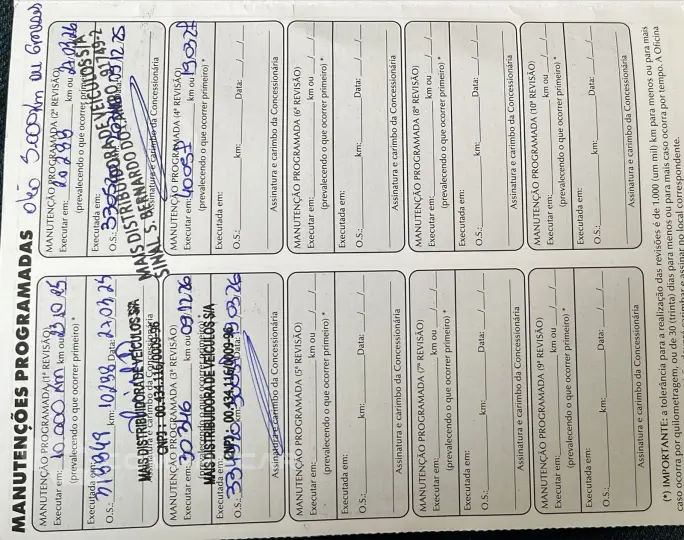 MANUTENÇÕES PROGRAMADAS
óleo 5.000km ou 6 meses
MANUTENÇÃO PROGRAMADA (1ª REVISÃO)
Executar em: 10.000 km ou 23 10 25
(prevalecendo o que ocorrer primeiro) *
Executada em:
O.S.: km: 10298 Data: 27 03 25
MAIS DISTRIBUIDORA DE VEÍCULOS S/A
Assinatura e carimbo da Concessionária
CNPJ: 00.434.116/0009-96
MANUTENÇÃO PROGRAMADA (2ª REVISÃO)
Executar em: 20298 km ou 27 03 26
(prevalecendo o que ocorrer primeiro) *
Executada em:
O.S.: Data: 09 12 25
MAIS DISTRIBUIDORA DE VEÍCULOS S/A
SINAL S. BERNARDO DO
Assinatura e carimbo da Concessionária
MANUTENÇÃO PROGRAMADA (3ª REVISÃO)
Executar em: 30246 km ou 09 12 26
(prevalecendo o que ocorrer primeiro) *
MAIS DISTRIBUIDORA DE VEÍCULOS S/A
Executada em:
CNPJ: 00.434.116/0009-96
O.S.: Data: 19 03 26
Assinatura e carimbo da Concessionária
MANUTENÇÃO PROGRAMADA (4ª REVISÃO)
Executar em: 40057 km ou 19 03 27
(prevalecendo o que ocorrer primeiro) *
Executada em:
O.S.: km: Data: / /
Assinatura e carimbo da Concessionária
MANUTENÇÃO PROGRAMADA (5ª REVISÃO)
Executar em: km ou / /
(prevalecendo o que ocorrer primeiro) *
Executada em:
O.S.: km: Data: / /
Assinatura e carimbo da Concessionária
MANUTENÇÃO PROGRAMADA (6ª REVISÃO)
Executar em: km ou / /
(prevalecendo o que ocorrer primeiro) *
Executada em:
O.S.: km: Data: / /
Assinatura e carimbo da Concessionária
MANUTENÇÃO PROGRAMADA (7ª REVISÃO)
Executar em: km ou / /
(prevalecendo o que ocorrer primeiro) *
Executada em:
O.S.: km: Data: / /
Assinatura e carimbo da Concessionária
MANUTENÇÃO PROGRAMADA (8ª REVISÃO)
Executar em: km ou / /
(prevalecendo o que ocorrer primeiro) *
Executada em:
O.S.: km: Data: / /
Assinatura e carimbo da Concessionária
MANUTENÇÃO PROGRAMADA (9ª REVISÃO)
Executar em: km ou / /
(prevalecendo o que ocorrer primeiro) *
Executada em:
O.S.: km: Data: / /
Assinatura e carimbo da Concessionária
MANUTENÇÃO PROGRAMADA (10ª REVISÃO)
Executar em: km ou / /
(prevalecendo o que ocorrer primeiro) *
Executada em:
O.S.: km: Data: / /
Assinatura e carimbo da Concessionária
(*) IMPORTANTE: a tolerância para a realização das revisões é de 1.000 (um mil) km para menos ou para mais
caso ocorra por quilometragem, ou de 30 (trinta) dias para menos ou para mais caso ocorra por tempo. A Oficina
carimbar e assinar no local correspondente.